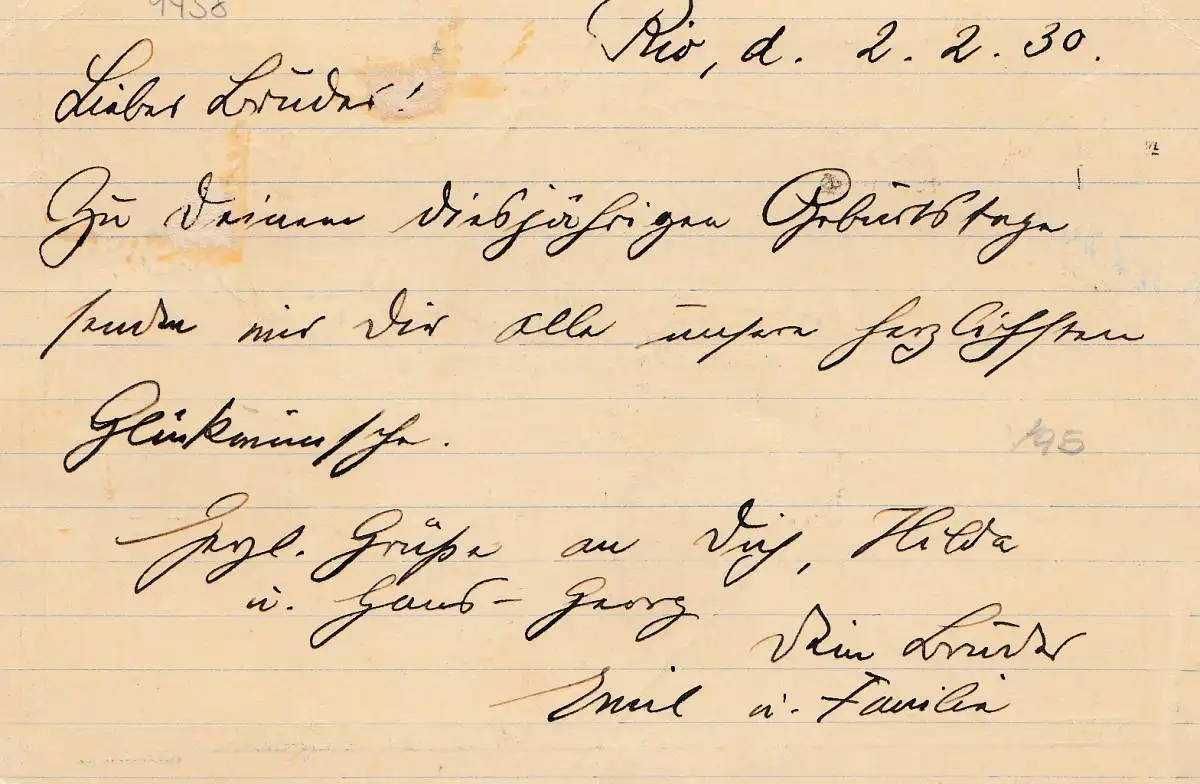 9458
Rio, d. 2.2.30.
Lieber Bruder!
Zu Deinem diesjährigen Geburtstage
senden wir Dir alle unsere herzlichsten
Glückwünsche.
Herzl. Grüße an Dich, Hilda
u. Hans-Georg
Dein Bruder
Emil u. Familie
195